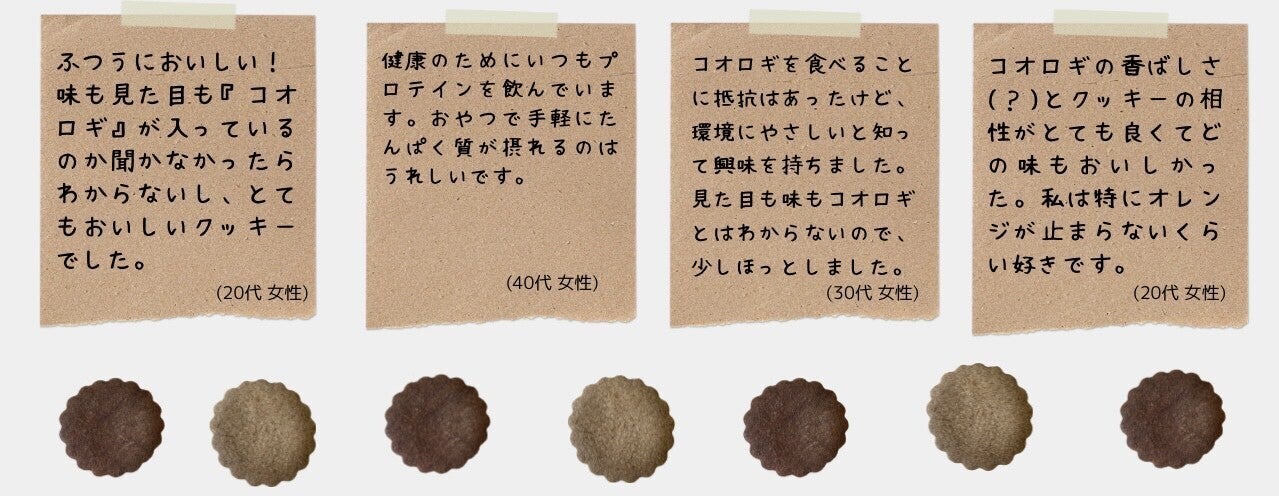 ふつうにおいしい！
味も見た目も『コオ
ロギ』が入っている
のか聞かなかったら
わからないし、とて
もおいしいクッキー
でした。
(20代 女性)
健康のためにいつもプ
ロテインを飲んでいま
す。おやつで手軽にた
んぱく質が摂れるのは
うれしいです。
(40代 女性)
コオロギを食べること
に抵抗はあったけど、
環境にやさしいと知っ
て興味を持ちました。
見た目も味もコオロギ
とはわからないので、
少しほっとしました。
(30代 女性)
コオロギの香ばしさ
(？)とクッキーの相
性がとても良くてど
の味もおいしかっ
た。私は特にオレン
ジが止まらないくら
い好きです。
(20代 女性)